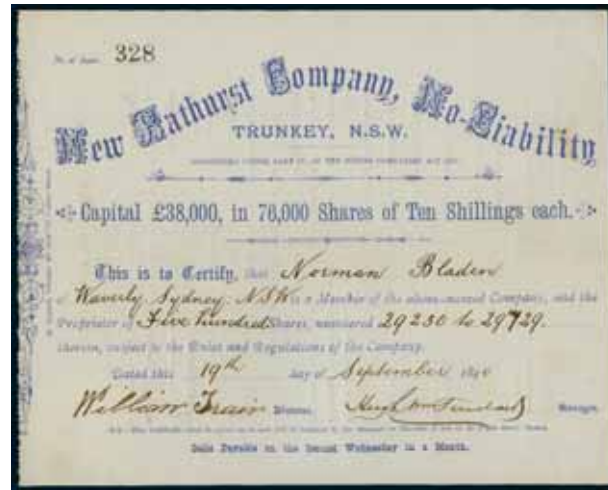 No. of Shares 328
New Bathurst Company, No-Liability,
TRUNKEY, N.S.W.
Capital £38,000, in 76,000 Shares of Ten Shillings each.
This is to Certify, that Norman Bladen
of Waverly Sydney NSW is a Member of the above-named Company, and the
Proprietor of Five hundred Shares, numbered 29230 to 29729.
therein, subject to the Rules and Regulations of the Company.
Dated this 19th day of September
William Train Director. Manager.
Calls Payable on the Second Wednesday in a Month.